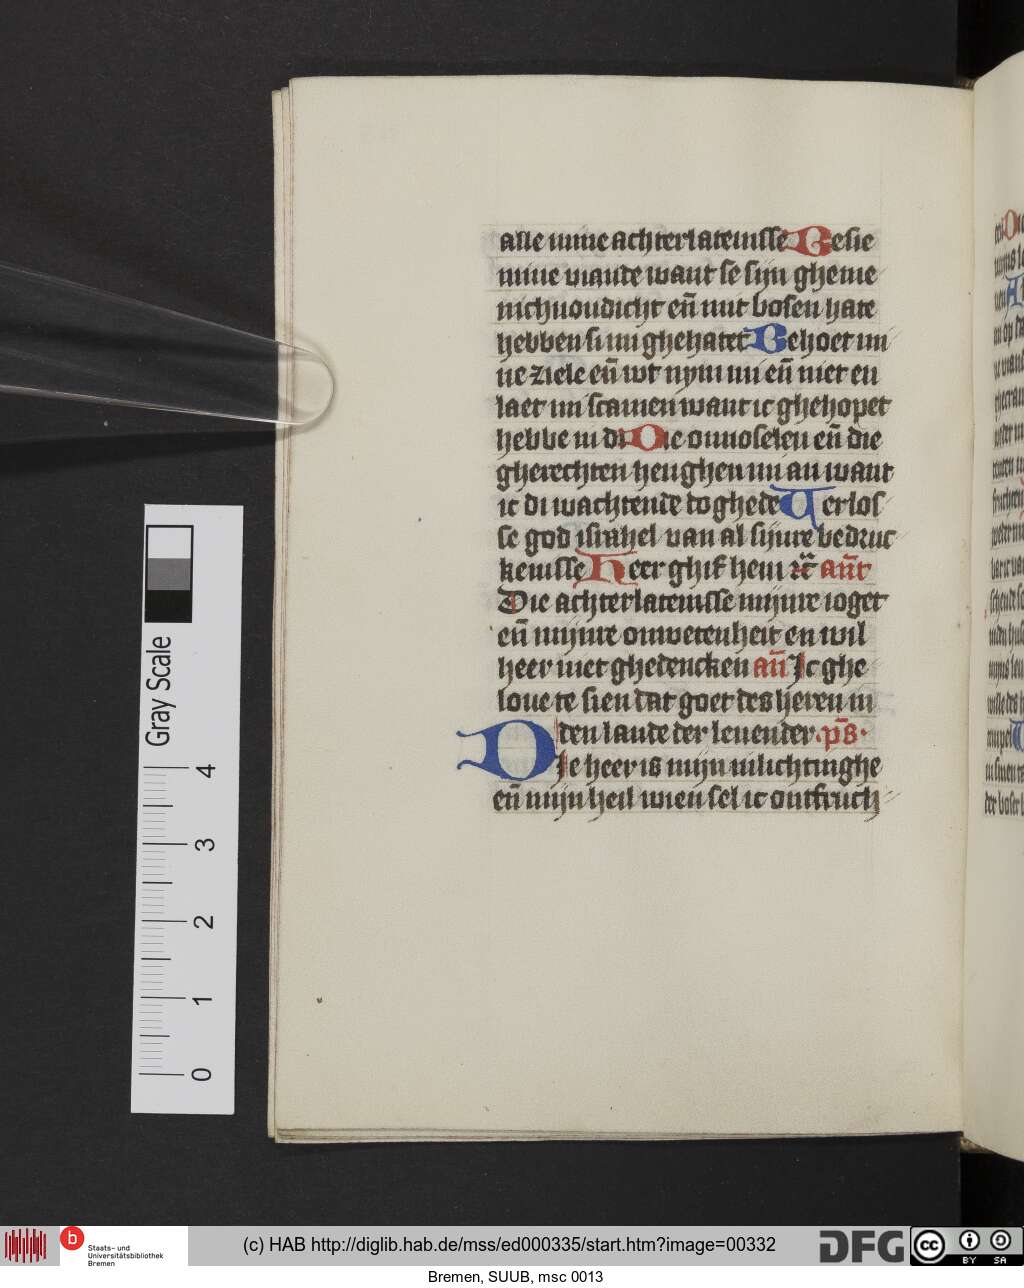 alle mine achterlatenisse Besie
mine viande want se sijn gheme
nichuoudicht en̄ mit bosen hate
hebben si mi ghehatet Behoet mi
ne ziele en̄ wt nym mi en̄ niet en
laet mi scamen want ic ghehopet
hebbe in di Die onnoselen en̄ die
gherechten henghen mi an want
ic di wachtende toghede Verlos
se god israhel van al sijnre bedruc
kenisse Heer ghif hem ꝛc̄ an̄t
Die achterlatenisse mijnre ioget
en̄ mijnre onwetenheit en wil
heer niet ghedencken an̄ Ic ghe
loue te sien dat goet des heren in
den lande der leuender · p̄s ·
Die heer is mijn uilichtinghe
en̄ mijn heil wien sel ic ontfruch
Gray Scale
4
3
2
1
0
b
Staats- und
Universitätsbibliothek
Bremen
(c) HAB http://diglib.hab.de/mss/ed000335/start.htm?image=00332
DFG
cc
BY SA
Bremen, SUUB, msc 0013